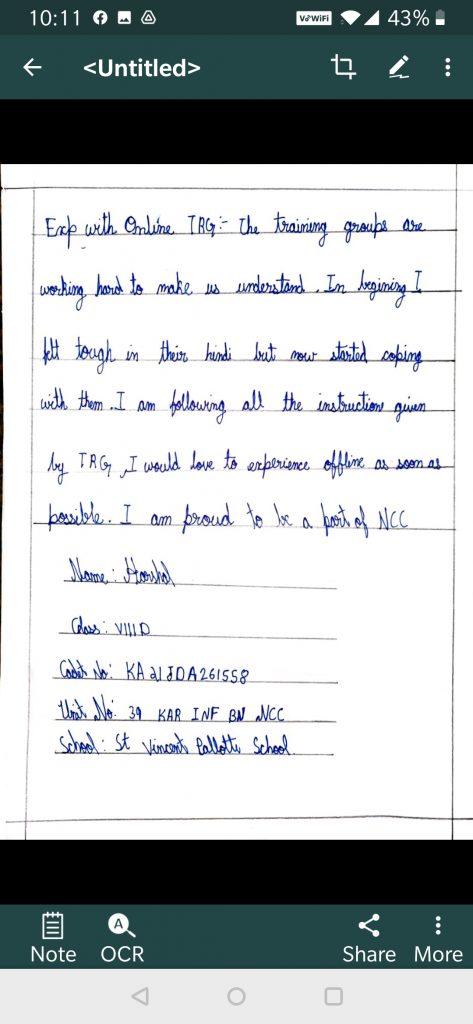 10:11
VoWiFi
43%
<Untitled>
Exp with Online TRG:- The training groups are
working hard to make us understand. In begining I
felt tough in their hindi but now started coping
with them. I am following all the instructions given
by TRG, I would love to experience offline as soon as
possible. I am proud to be a part of NCC
Name: Harshal
Class: VIII D
Cadet No: KA21JDA261558
Unit No: 39 KAR INF BN NCC
School: St Vincent Pallotti School
Note
OCR
Share
More